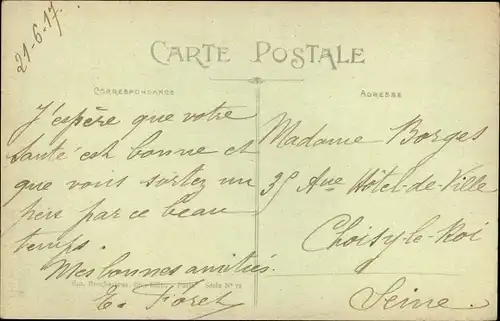 21-6-17
CARTE POSTALE
CORRESPONDANCE
J'espère que votre
santé est bonne et
que vous sortez un
peu par ce beau
temps.
Mes bonnes amitiés.
E. Foret
ADRESSE
Madame Borges
35 Aue Hôtel-de-Ville
Choisy-le-Roi
Seine.